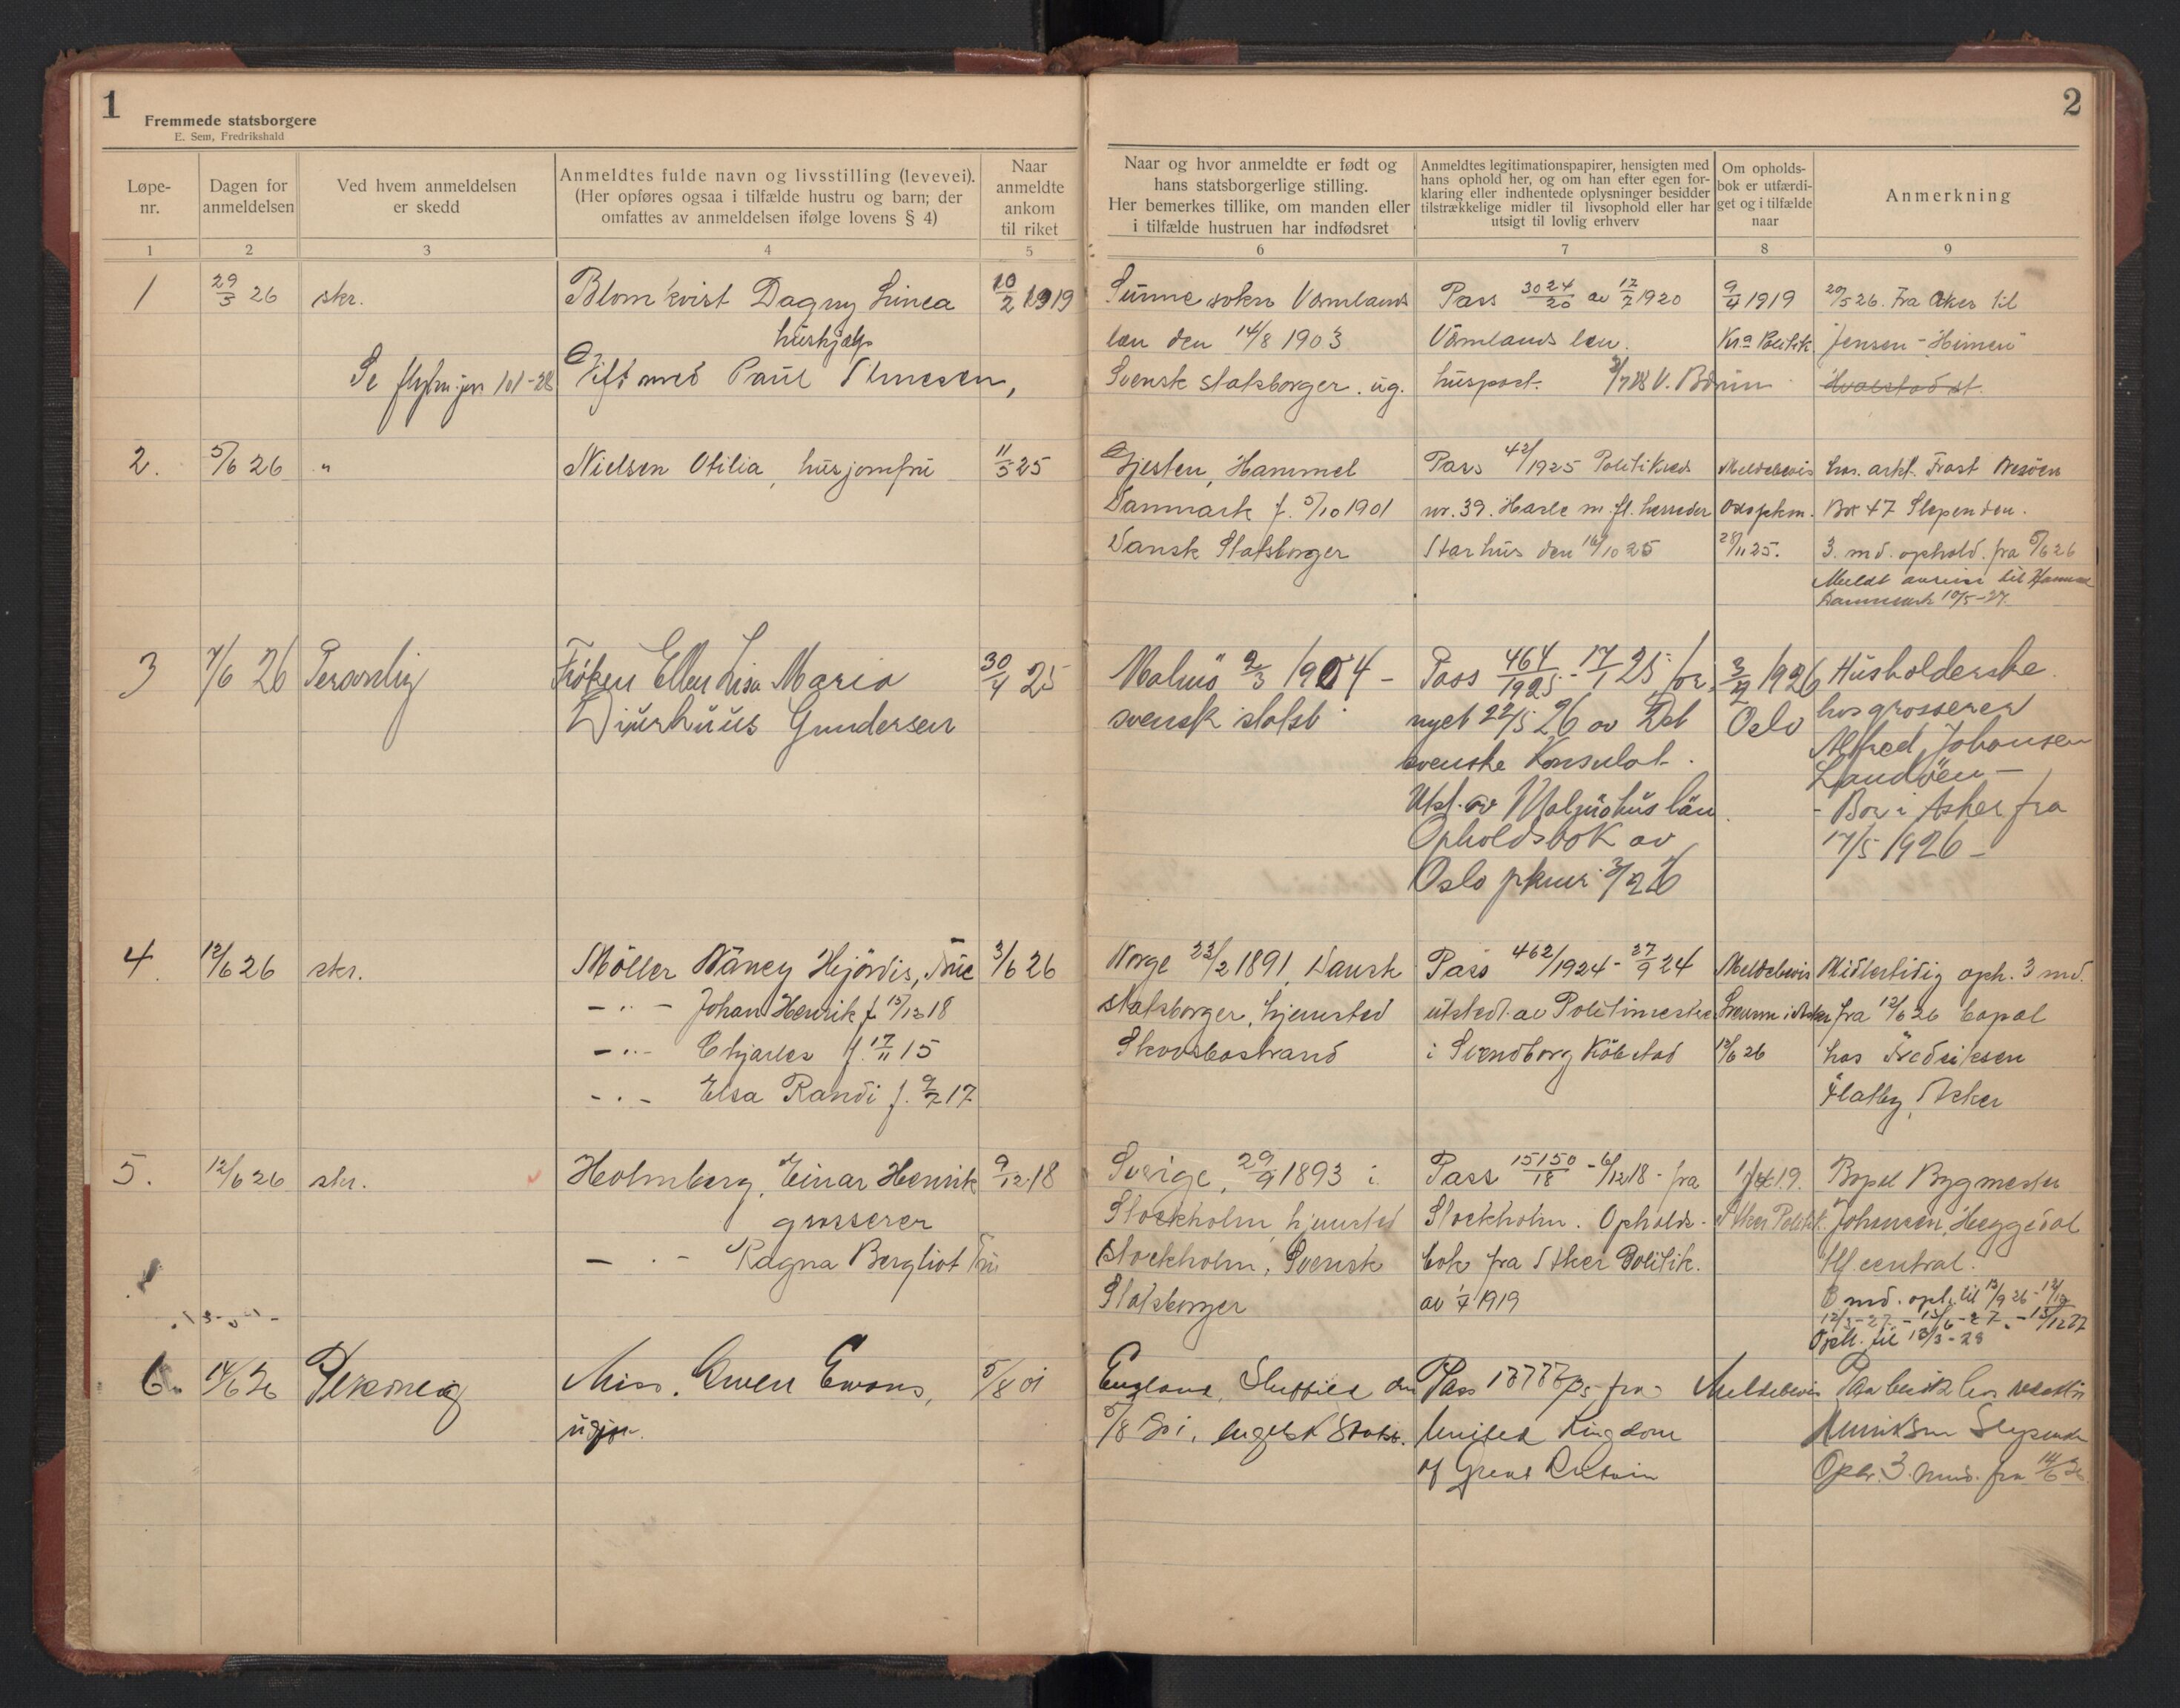 1
Fremmede statsborgere
E. Sem, Fredrikshald
Løpe-
nr.
Dagen for
anmeldelsen
Ved hvem anmeldelsen
er skedd
Anmeldtes fulde navn og livsstilling (levevei).
(Her opføres ogsaa i tilfælde hustru og barn; der
omfattes av anmeldelsen ifølge lovens § 4)
Naar
anmeldte
ankom
til riket
1 2 3 4 5
2
Naar og hvor anmeldte er født og
hans statsborgerlige stilling.
Her bemerkes tillike, om manden eller
i tilfælde hustruen har indfødsret
Anmeldtes legitimationspapirer, hensigten med
hans ophold her, og om han efter egen for-
klaring eller indhentede oplysninger besidder
tilstrækkelige midler til livsophold eller har
utsigt til lovlig erhverv
Om opholds-
bok er utfærdi-
get og i tilfælde
naar
Anmerkning
6 7 8 9
1 29/3 26 skr. Blomkvist Dagny Linea 10/2 1919
hushjælp
Se 101-28 Gift med Paul
Sunne sokn Värmlands
län den 14/8 1903
Svensk statsborger. ug.
Pass 3024/20 av 17/7 1920
Värmlands län.
huspost.
9/4 1919
Kra Politik.
20/5 26. Fra Aker til
Jensen - "Heimen"
Hvalstad st.
2. 5/6 26 " Nielsen Otilia, husjomfru 11/5 25
Gjesten, Hammel
Danmark f. 5/10 1901
Dansk Statsborger
Pass 42/1925 Politikreds
nr. 39. Harle m. fl. herreder
den 16/10 25
Meldebevis
Oslo pkm.
28/11 25.
hos. arkt. Frost
Box 47 Slependen.
3. md. ophold. fra 5/6 26
Meldt avreise til
Danmark 10/5-27.
3 7/6 26 Personlig Frøken Ellen Lisa Maria 30/4 25
Djurhuus Gundersen
Malmö 2/3 1904 -
svensk statsb.
Pass 464/1925 - 17/1 25, for-
nyet 22/5 26 av Det
svenske Konsulat.
Utst. av Malmöhus län.
Opholdsbok av
Oslo pkmr. 3/2 26
3/2 1926
Oslo
Husholderske
hos grosserer
Alfred Johansen
Landöen -
- Bor i Asker fra
17/5 1926 -
4. 12/6 26 skr. Möller Nancy Hjördis, Frue 3/6 26
- " - Johan Henrik f. 15/12 18
- " - Charles f. 17/11 15
- " - Elsa Randi f. 9/7 17
Norge 22/2 1891, Dansk
statsborger, hjemsted
Skovsbostrand
Pass 462/1924 - 27/9 24
utstedt av Politimester
i Svendborg Købstad
Meldebevis
Lensm. i Asker
12/6 26
Midlertidig oph. 3 md.
fra 12/6 26 bopal
hos Fredriksen
Flatby, Asker
5. 12/6 26 skr. Holmberg, Einar Henrik 9/12 18
grosserer
- " - Ragna Bergliot Fru
Sverige, 29/9 1893 i
Stockholm, hjemsted
Stockholm, Svensk
Statsborger
Pass 15150/18 - 6/12 18 - fra
Stockholm. Opholds-
bok fra Aker Politik.
av 1/4 1919
1/4 19.
Aker Politik.
Bopel Bygmester
Johansen, Heggedal
tlf. central.
3 md. oph. til 12/9 26 - 12/12
12/3-27. - 12/6-27. - 12/12 27
Oph. til 12/3-28
6. 14/6 26 Personlig Miss. Gwen Evans, 5/8 01
England, Sheffield den
5/8 01. engelsk Statsb.
Pass fra
United Kingdom
of Great Britain
Meldebevis
Paa besøk hos
Henriksen Slependen
Oph. 3 mnd. fra 14/6 26